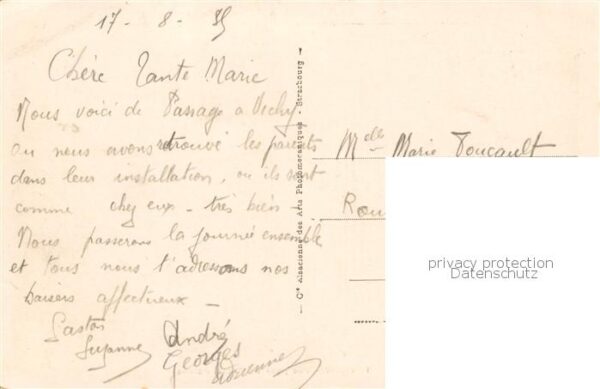 17 - 8 - 35
Chère Tante Marie
Nous voici de Passage a Vichy
ou nous avons retrouvé les parents
dans leur installation, ou ils sont
comme chez eux - très bien -
Nous passerons la journée ensemble
et tous nous t'adressons nos
baisers affectueux -
Gaston André
Suzanne Georges
— Cie Alsacienne des Arts Photomécaniques - Strasbourg —
Melle Marie Toucault
Rou
privacy protection
Datenschutz